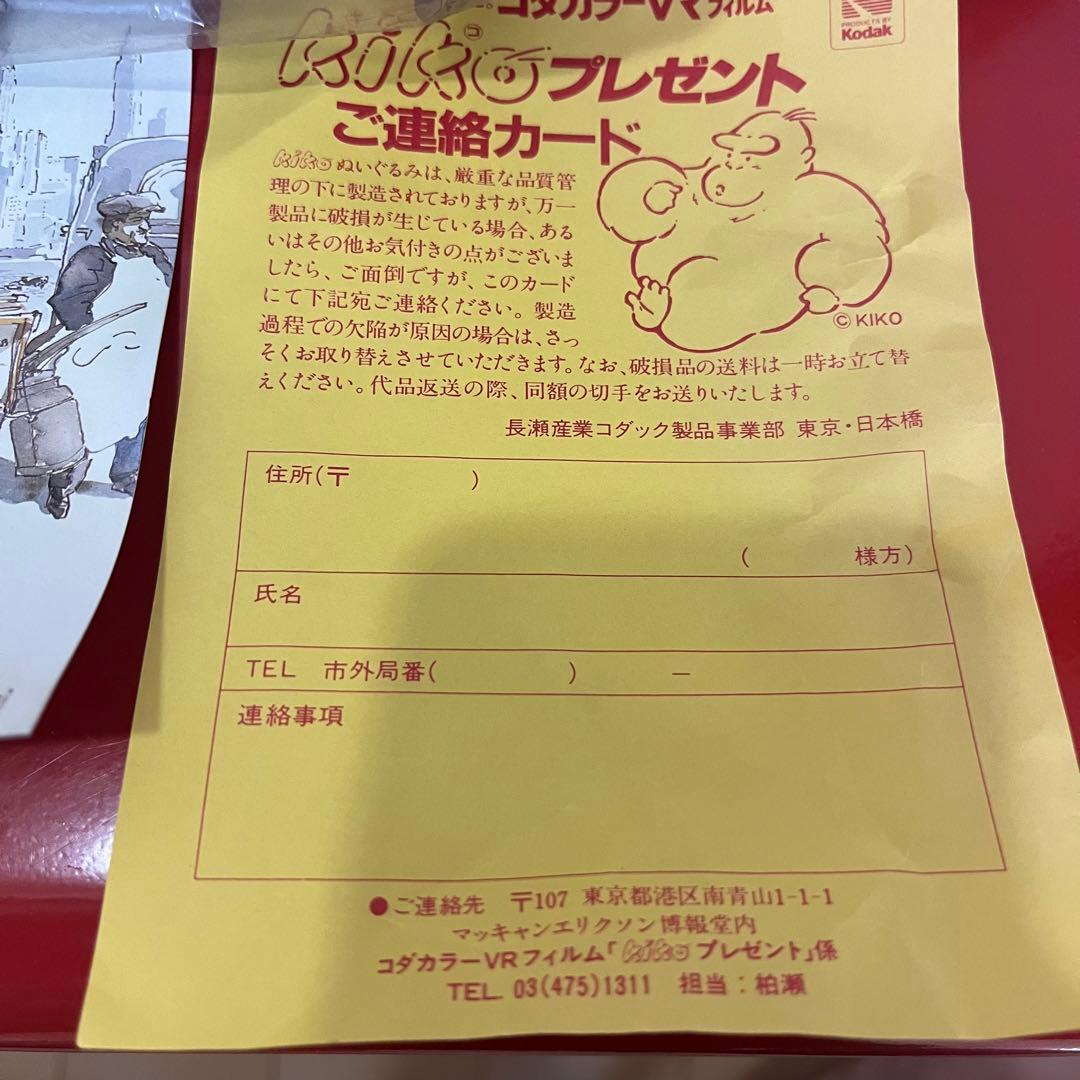 コダカラーVRフィルム
PRODUCTS BY
Kodak
kiko プレゼント
コ
ご連絡カード
kikoぬいぐるみは、厳重な品質管
理の下に製造されておりますが、万一
製品に破損が生じている場合、ある
いはその他お気付きの点がございま
したら、ご面倒ですが、このカード
にて下記宛ご連絡ください。製造
過程での欠陥が原因の場合は、さっ
そくお取り替えさせていただきます。なお、破損品の送料は一時お立て替
えください。代品返送の際、同額の切手をお送りいたします。
© KIKO
長瀬産業コダック製品事業部 東京・日本橋
住所(〒 )
( 様方)
氏名
TEL 市外局番( ) −
連絡事項
●ご連絡先 〒107 東京都港区南青山1-1-1
マッキャンエリクソン博報堂内
コダカラーVRフィルム「kikoプレゼント」係
TEL. 03(475)1311 担当:柏瀬